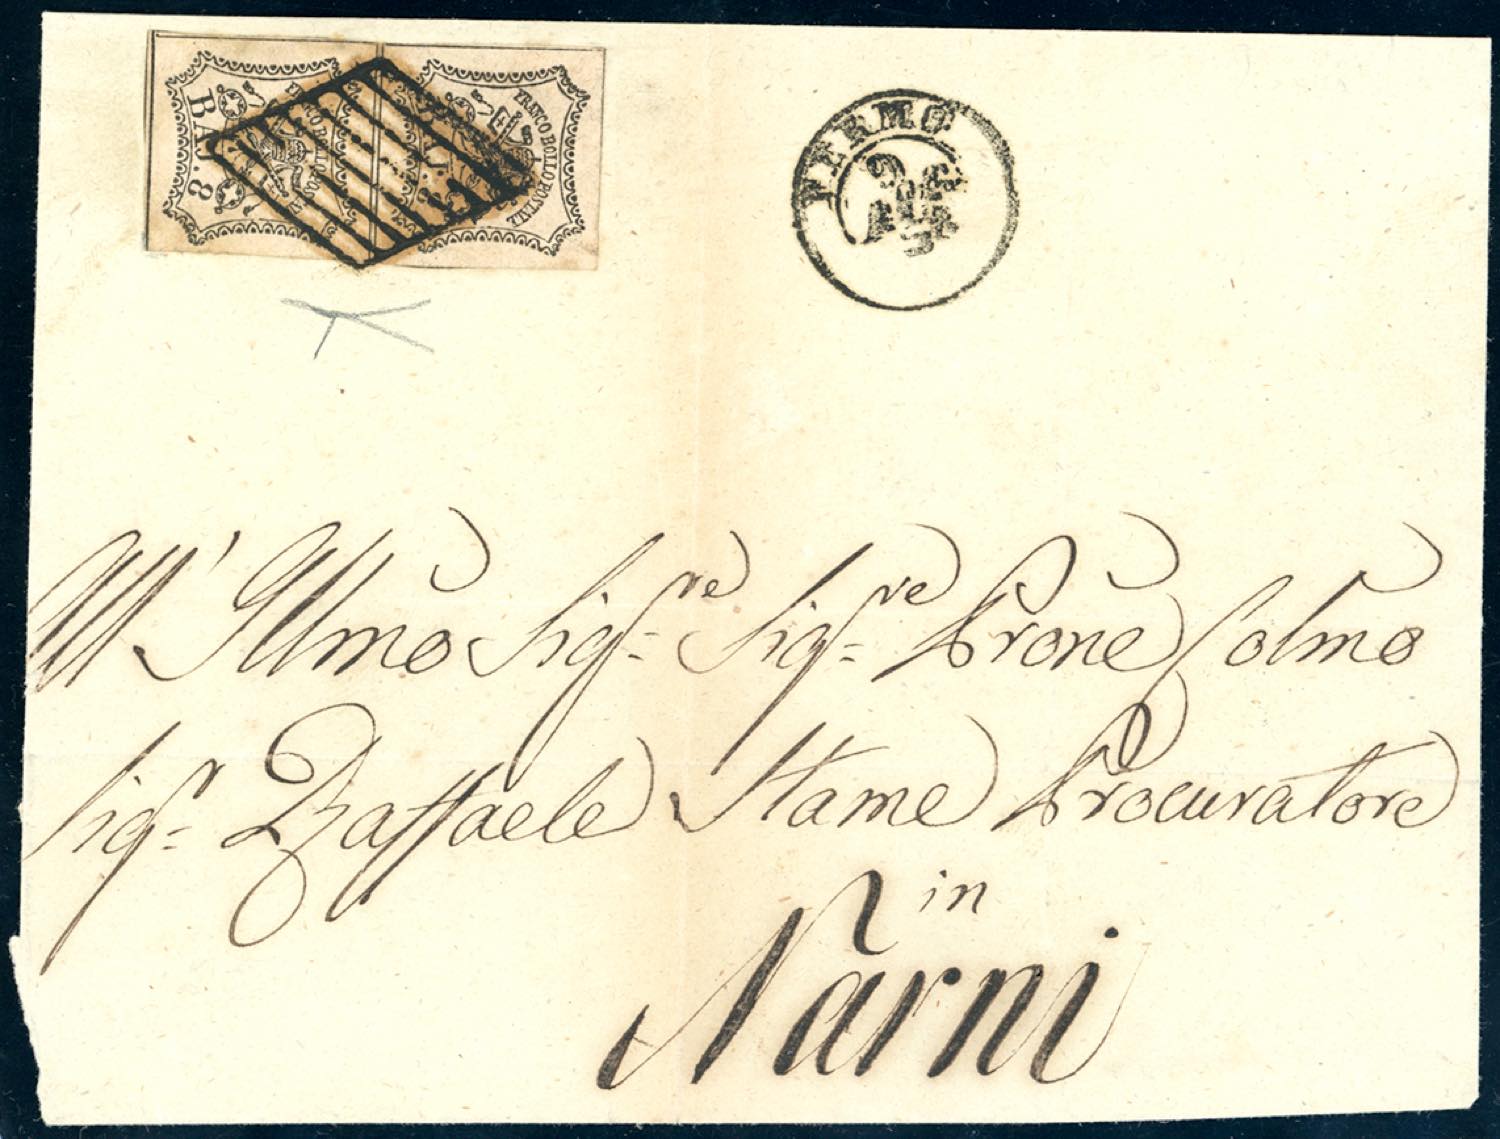 FRANCO BOLLO POSTALE
BAJ. 8
FRANCO BOLLO POSTALE
BAJ. 8
FERMO
All' Illmo Sigre Sigre Prone Colmo
Sigr Raffaele Stame Procuratore
in
Narni